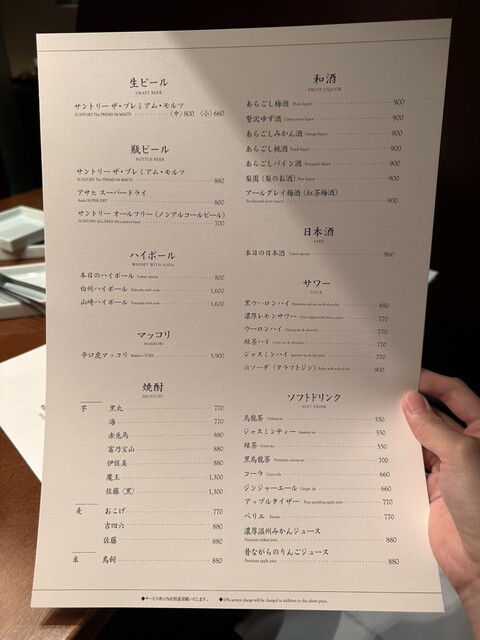 生ビール
DRAFT BEER
サントリー ザ・プレミアム・モルツ
SUNTORY The PREMIUM MALTS 〈中〉800 〈小〉660
瓶ビール
BOTTLE BEER
サントリー ザ・プレミアム・モルツ
SUNTORY The PREMIUM MALTS 880
アサヒ スーパードライ
Asahi SUPER DRY 800
サントリー オールフリー（ノンアルコールビール）
SUNTORY ALL-FREE 700
ハイボール
WHISKY WITH SODA
本日のハイボール 800
白州ハイボール Hakushu with soda 1,600
山崎ハイボール Yamazaki with soda 1,600
マッコリ
MAKKORI
辛口虎マッコリ Makkori TORA 3,900
焼酎
SHOUCHU
芋 黒丸 770
海 770
赤兎馬 880
富乃宝山 880
伊佐美 880
魔王 1,300
佐藤（黒） 1,300
麦 おこげ 770
吉四六 880
佐藤 880
米 鳥飼 880
和酒
FRUIT LIQUOR
あらごし梅酒 Plum liquor 900
贅沢ゆず酒 900
あらごしみかん酒 Orange liquor 900
あらごし桃酒 Peach liquor 900
あらごしパイン酒 Pineapple liquor 900
梨園（梨のお酒） Pear liquor 900
アールグレイ梅酒（紅茶梅酒）
Tea flavored plum liquor 900
日本酒
SAKE
本日の日本酒 Today's special 960
サワー
SOUR
黒ウーロンハイ 880
濃厚レモンサワー 770
ウーロンハイ Oolong tea & shouchu 770
緑茶ハイ Green tea & shouchu 770
ジャスミンハイ Jasmine tea & shouchu 770
六ソーダ（クラフトジン） 900
ソフトドリンク
SOFT DRINK
烏龍茶 Oolong tea 550
ジャスミンティー Jasmine tea 550
緑茶 Green tea 550
黒烏龍茶 Premium oolong tea 700
コーラ Coca cola 660
ジンジャーエール Ginger ale 660
アップルタイザー Pure sparkling apple juice 770
ペリエ Perrier 770
濃厚温州みかんジュース
Premium mikan juice 880
昔ながらのりんごジュース
Premium apple juice 880
◆サービス料10%を別途頂戴いたします。 ◆10% service charge will be charged in addition to the above price.